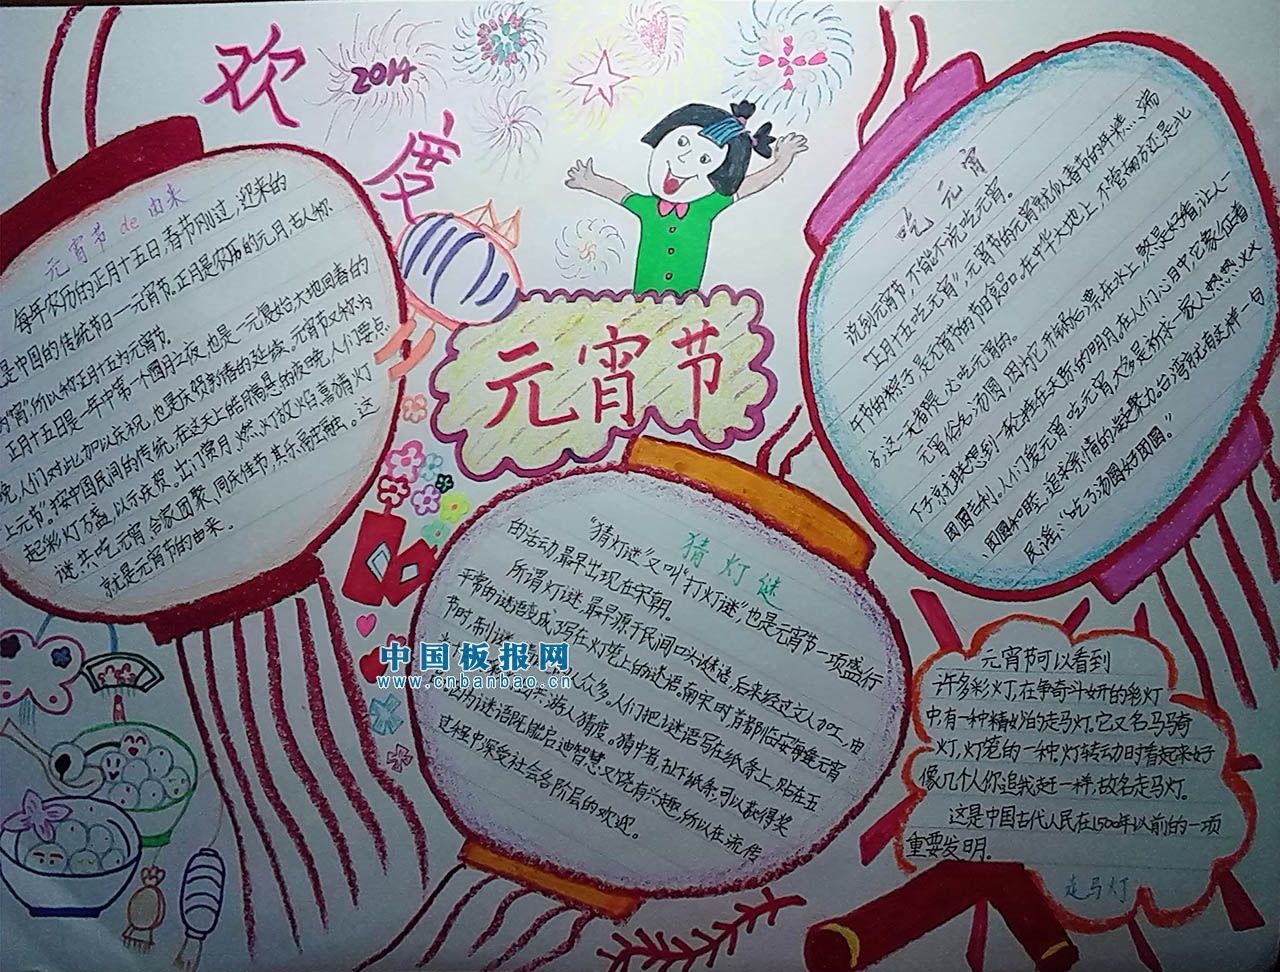 欢
2014
度
元宵节
元宵节de由来
每年农历的正月十五日,春节刚过,迎来的
是中国的传统节日—元宵节.正月是农历的元月,古人称
为“宵”,所以称正月十五为元宵节.
正月十五日是一年中第一个圆月之夜,也是一元复始,大地回春的
晚,人们对此加以庆祝,也是庆贺新春的延续.元宵节又称为
上元节.按中国民间的传统,在这天上皓月高悬的夜晚,人们要点
起彩灯万盏,以示庆贺.出门赏月,燃灯放火焰,喜猜灯
谜,共吃元宵,合家团聚,同庆佳节,其乐融融.这
就是元宵节的由来.
吃元宵
说到元宵节,不能不说吃元宵.
“正月十五吃元宵”,元宵节的元宵就似春节的年糕,端
午节的粽子,是元宵节的节日食品.在中华大地上,不管南方还是北
方,这一天都要
元宵俗名:汤圆
下子就联想到一轮
团圆吉利.人们爱元宵,吃元宵,大多是祈求一家人热热火火
民谣:“吃了汤圆好团圆”
猜灯谜
“猜灯谜”又叫“打灯谜”,也是元宵节一项盛行
的活动,最早出现在宋朝.
所谓灯谜,最早源于民间口头谜语,后来经过文人加工,由
平常的谜语变成了写在灯笼上的谜语.南宋时,首都临安每逢元宵
节时,制谜
人众多.人们把谜语写在纸条上,贴在五
游人猜度.猜中者,扯下纸条,可以换得奖
因为谜语既能启迪智慧又饶有兴趣,所以在流传
过程中深受社会各阶层的欢迎.
元宵节可以看到
许多彩灯,在争奇斗妍的彩灯
中,有一种精妙的走马灯.它又名马骑
灯,灯笼的一种,灯转动时看起来好
像几个人你追我赶一样,故名走马灯.
这是中国古代人民在1500年以前的一项
重要发明.
走马灯
中国板报网
www.cnbanbao.cn